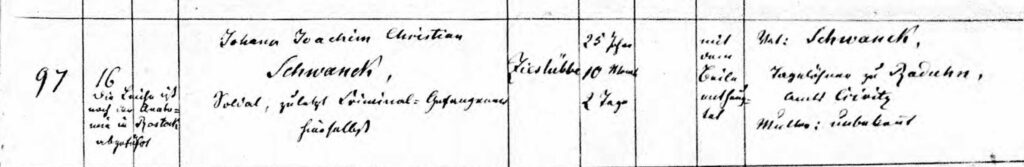 97
16
Die Leiche ist
nach der Anato-
mie in Rostock
abgeführt
Johann Joachim Christian
Schwanck,
Soldat, zuletzt Criminal-Gefangener
hieselbst
Zieslübbe
25 Jhr
10 Mont
2 Tage
mit
dem
Beile
enthaup-
tet
Vat: Schwanck,
Tagelöhner zu Raduhn,
Amts Crivitz
Mutter: unbekannt